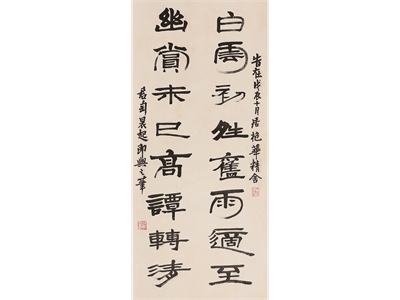 旹在戊辰十月居抱華精舍
白雲初夝舊雨適至
幽賞未已高譚轉清
君匋晨起即興之筆